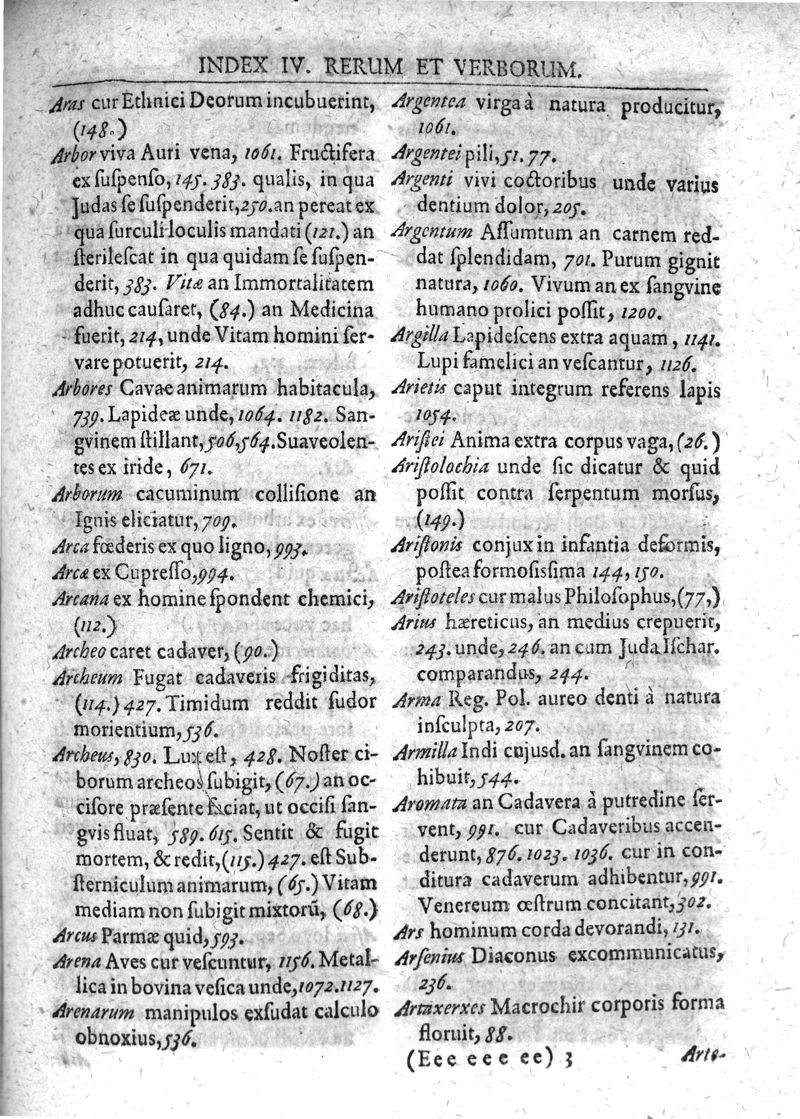 INDEX IV. RERUM ET VERBORUM.
Aras cur Ethnici Deorum incubuerint,
(148.)
Arbor viva Auri vena, 1061. Fructifera
ex ſuſpenſo, 145. 383. qualis, in qua
Judas ſe ſuſpenderit, 250. an pereat ex
qua ſurculi loculis mandati (121.) an
ſterileſcat in qua quidam ſe ſuſpen-
derit, 383. Vitæ an Immortalitatem
adhuc cauſaret, (84.) an Medicina
fuerit, 214, unde Vitam homini ſer-
vare potuerit, 214.
Arbores Cavae animarum habitacula,
739. Lapideæ unde, 1064. 1182. San-
gvinem ſtillant, 506, 564. Suaveolen-
tes ex iride, 671.
Arborum cacuminum colliſione an
Ignis eliciatur, 709.
Arca fœderis ex quo ligno, 993.
Arcæ ex Cupreſſo, 994.
Arcana ex homine ſpondent chemici,
(112.)
Archeo caret cadaver, (90.)
Archeum Fugat cadaveris frigiditas,
(114.) 427. Timidum reddit ſudor
morientium, 536.
Archeus, 830. Lux eſt, 428. Noſter ci-
borum archeos ſubigit, (67.) an oc-
ciſore præſente faciat, ut occiſi ſan-
gvis fluat, 589. 615. Sentit & fugit
mortem, & redit, (115.) 427. eſt Sub-
ſterniculum animarum, (65.) Vitam
mediam non ſubigit mixtorũ, (68.)
Arcus Parmæ quid, 593.
Arena Aves cur veſcuntur, 1156. Metal-
lica in bovina veſica unde, 1072. 1127.
Arenarum manipulos exſudat calculo
obnoxius, 536.
Argentea virga à natura producitur,
1061.
Argentei pili, 51. 77.
Argenti vivi coctoribus unde varius
dentium dolor, 205.
Argentum Aſſumtum an carnem red-
dat ſplendidam, 701. Purum gignit
natura, 1060. Vivum an ex ſangvine
humano prolici poſſit, 1200.
Argilla Lapideſcens extra aquam, 1141.
Lupi famelici an veſcantur, 1126.
Arietis caput integrum referens lapis
1054.
Ariſtei Anima extra corpus vaga, (26.)
Ariſtolochia unde ſic dicatur & quid
poſſit contra ſerpentum morſus,
(149.)
Ariſtonis conjux in infantia deformis,
poſtea formoſisſima 144, 150.
Ariſtoteles cur malus Philoſophus, (77,)
Arius hæreticus, an medius crepuerit,
243. unde, 246. an cum Juda Iſchar.
comparandus, 244.
Arma Reg. Pol. aureo denti à natura
inſculpta, 207.
Armilla Indi cujusd. an ſangvinem co-
hibuit, 544.
Aromata an Cadavera à putredine ſer-
vent, 991. cur Cadaveribus accen-
derunt, 876. 1023. 1036. cur in con-
ditura cadaverum adhibentur, 991.
Venereum œſtrum concitant, 302.
Ars hominum corda devorandi, 131.
Arſenius Diaconus excommunicatus,
236.
Artaxerxes Macrochir corporis forma
floruit, 88.
(Eee eee ee) 3
Arte-